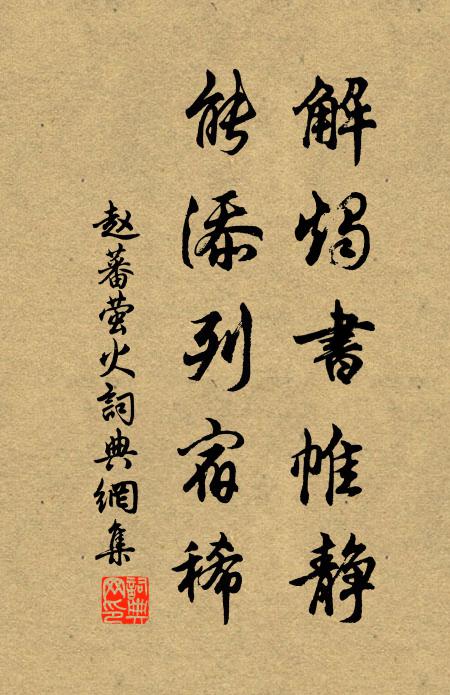 解烛書帷静
能添列宿稀
赵蕃萤火詞典網集
詞典网印